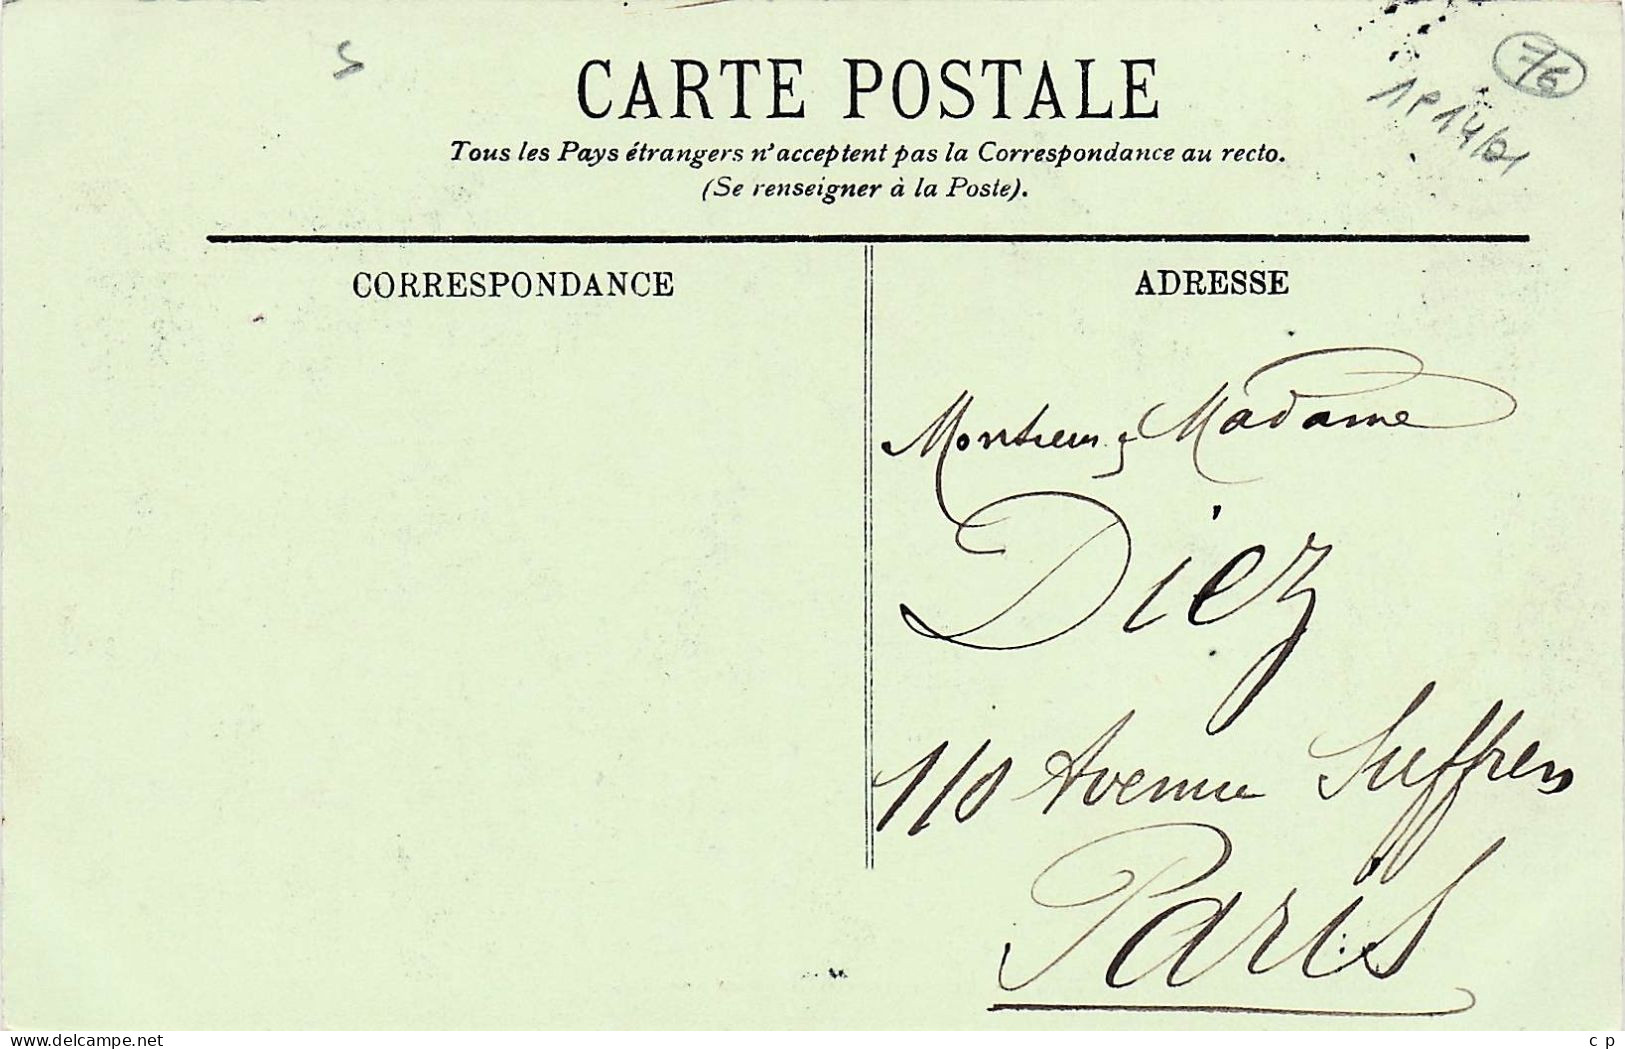 CARTE POSTALE
Tous les Pays étrangers n'acceptent pas la Correspondance au recto.
(Se renseigner à la Poste).
76
1P14/01
CORRESPONDANCE
ADRESSE
Monsieur & Madame
Diez
110 Avenue Suffren
Paris
www.delcampe.net
c p